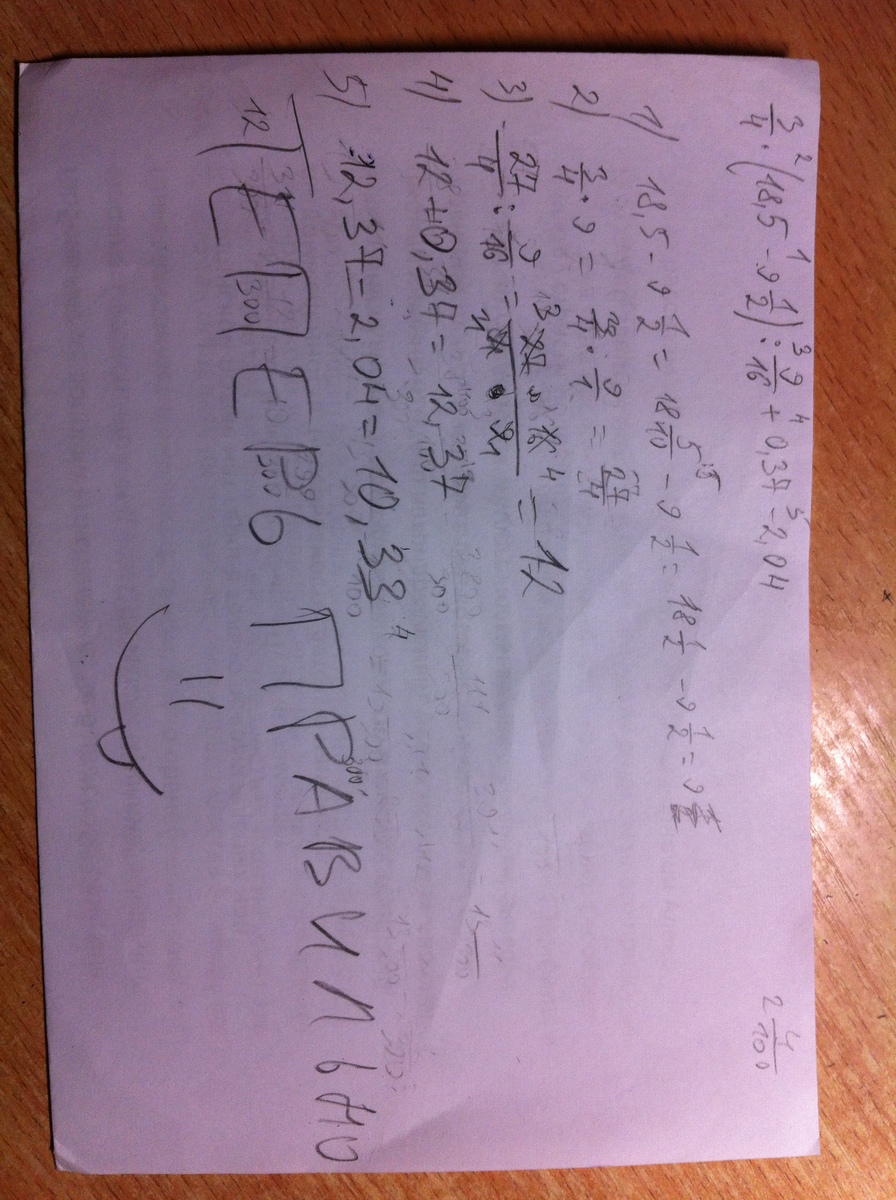 3/4 · (18,5 - 9 1/2) : 9/16 + 0,37 - 2,04
2 4/100
1) 18,5 - 9 1/2 = 18 5/10 - 9 1/2 = 18 1/2 - 9 1/2 = 9
2) 3/4 · 9 = 3/4 · 9/1 = 27/4
3) 27/4 : 9/16 = 27 · 16 / 4 · 9 = 12
4) 12 + 0,37 = 12,37
5) 12,37 - 2,04 = 10,33
ТЕПЕРЬ ПРАВИЛЬНО